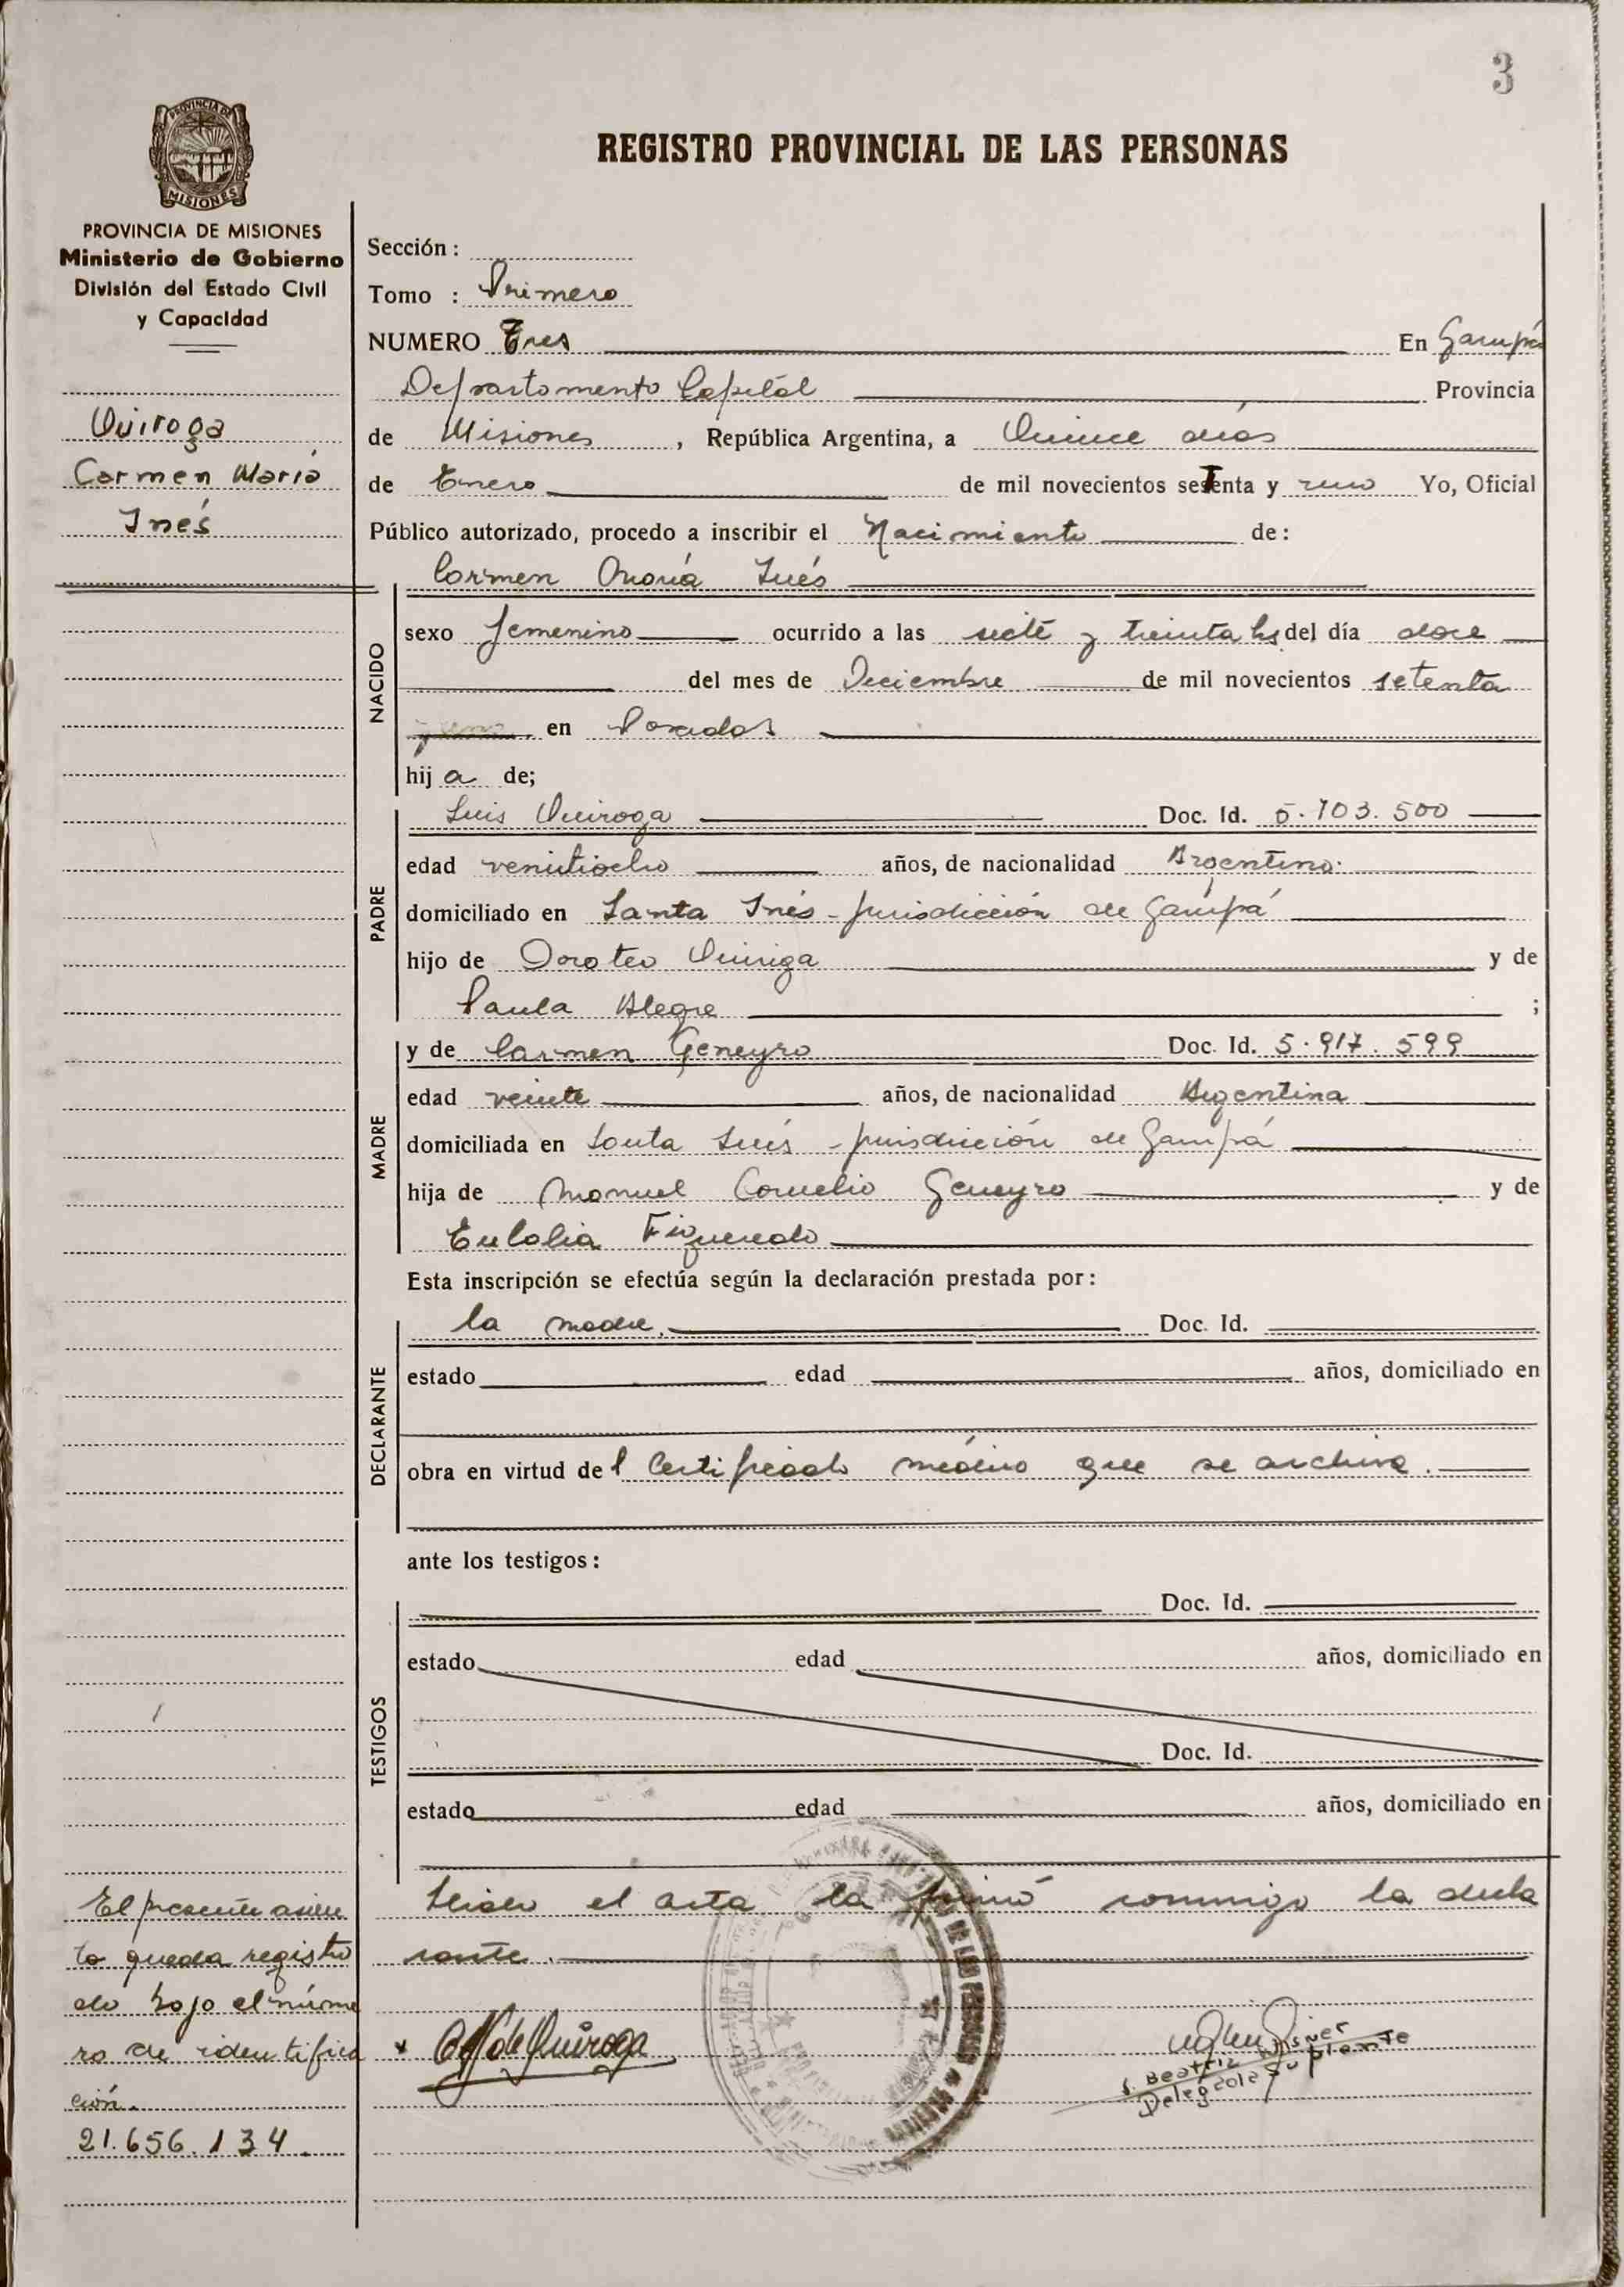 3
PROVINCIA DE
MISIONES
REGISTRO PROVINCIAL DE LAS PERSONAS
PROVINCIA DE MISIONES
Ministerio de Gobierno
División del Estado Civil
y Capacidad
Quiroga
Carmen María
Inés
Sección :
Tomo : Primero
NUMERO Tres En Garupá
Departamento Capital Provincia
de Misiones , República Argentina, a Quince días
de Enero de mil novecientos setenta y uno Yo, Oficial
Público autorizado, procedo a inscribir el Nacimiento de:
Carmen María Inés
NACIDO
sexo femenino ocurrido a las siete y treinta hs del día doce
del mes de Deciembre de mil novecientos setenta
en Posadas
hij a de;
PADRE
Luis Quiroga Doc. Id. 5.703.500
edad venitiocho años, de nacionalidad Argentino.
domiciliado en Santa Inés - jurisdicción de Garupá
hijo de Doroteo Quiroga y de
Paula Alegre ;
MADRE
y de Carmen Geneyro Doc. Id. 5.917.599
edad veinte años, de nacionalidad Argentina
domiciliada en Santa Inés - jurisdicción de Garupá
hija de Manuel Cornelio Geneyro y de
Eulalia Figueredo
Esta inscripción se efectúa según la declaración prestada por:
DECLARANTE
la madre. Doc. Id.
estado edad años, domiciliado en
obra en virtud del Certificado médico que se archiva.
ante los testigos:
TESTIGOS
Doc. Id.
estado edad años, domiciliado en
Doc. Id.
estado edad años, domiciliado en
el acta la firmó conmigo la decla
rante.
El presente asien
to queda registra
do bajo el núme
ro de identifica
ción.
21.656.134.
de Quiroga
DE LAS PERSONAS
Beatriz
Delegada Suplente